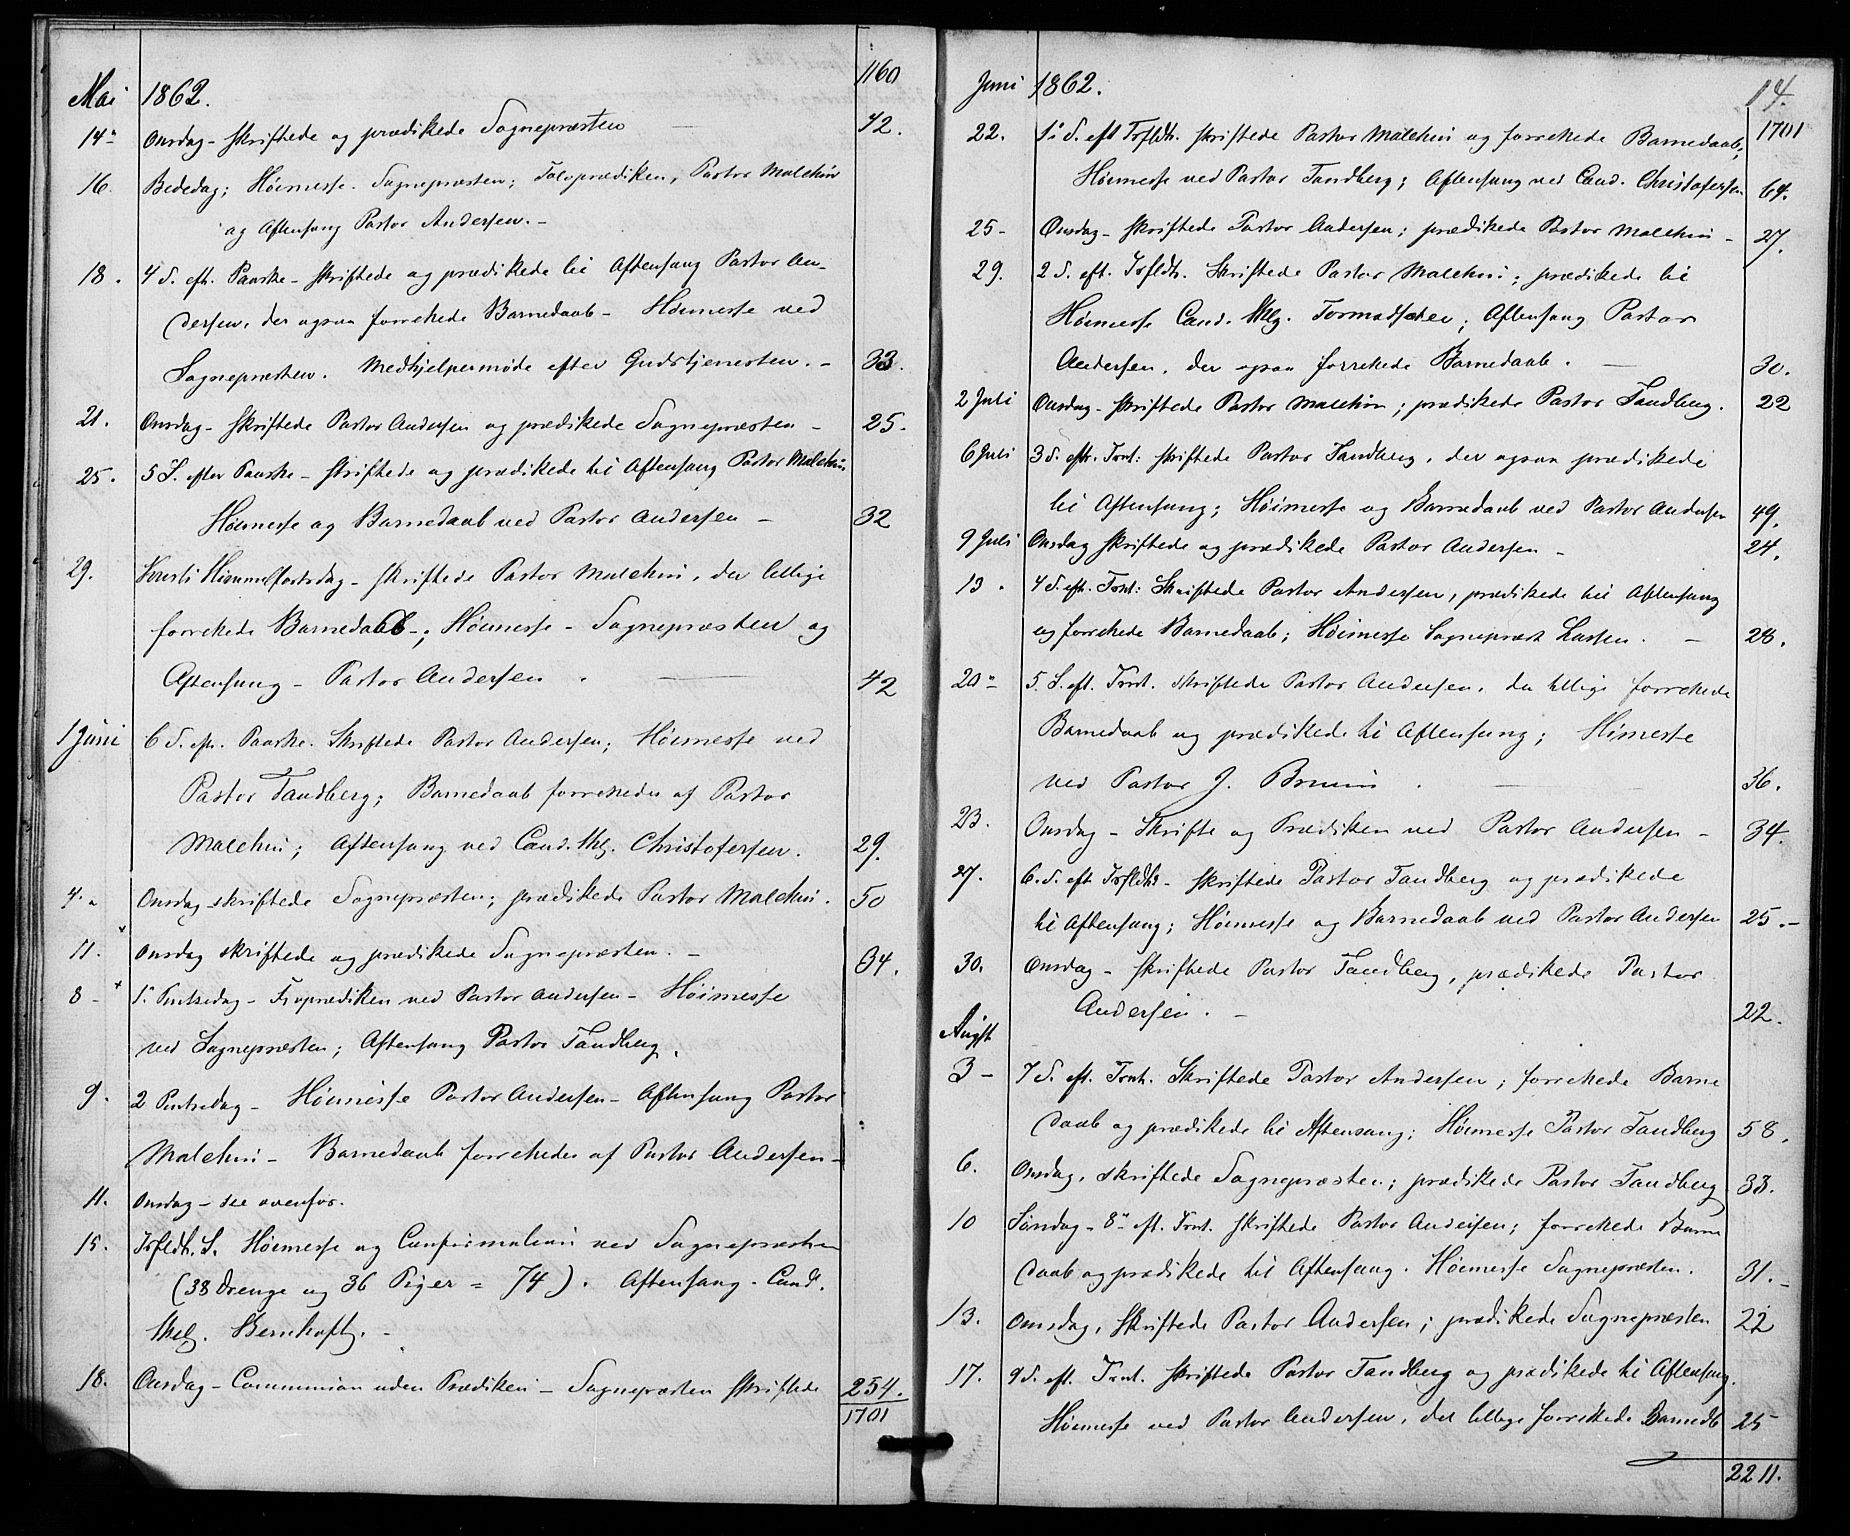 1160
Mai 1862.
14 Onsdag - skriftede og prædikede Sognepræsten - 42.
16. Bededag; Høimesse. Sognepræsten; Tolvprædiken, Pastor Malchin
og Aftensang Pastor Andersen. -
18. 4 S. eft. Paaske - skriftede og prædikede til Aftensang Pastor An-
dersen, der ogsaa forrettede Barnedaab - Høimesse ved
Sognepræsten. Medhjelpermøde efter Gudstjenesten. - 33.
21. Onsdag - skriftede Pastor Andersen og prædikede Sognepræsten - 25.
25. 5 S. efter Paaske - skriftede og prædikede til Aftensang Pastor Malchin
Høimesse og Barnedaab ved Pastor Andersen - 32
29. Kristi Himmelfartsdag - skriftede Pastor Malchin, der tillige
forrettede Barnedaab -; Høimesse - Sognepræsten og
Aftensang - Pastor Andersen . - 42
1 Juni 6 S. eft. Paaske. Skriftede Pastor Andersen; Høimesse ved
Pastor Tandberg; Barnedaab forrettedes af Pastor
Malchin; Aftensang ved Cand. thlg. Christofersen. 29.
4. Onsdag skriftede Sognepræsten; prædikede Pastor Malchin. 50
11. Onsdag skriftede og prædikede Sognepræsten. - 34.
8 - + 1. Pintsedag - Froprædiken ved Pastor Andersen - Høimesse
ved Sognepræsten; Aftensang Pastor Tandberg.
9. 2 Pintsedag - Høimesse Pastor Andersen - Aftensang Pastor
Malchin - Barnedaab forrettedes af Pastor Andersen -
11. Onsdag - see ovenfor.
15. Trfldh. S. Høimesse og Confirmation ved Sognepræsten
(38 Drenge og 36 Piger = 74). Aftensang. Cand.
thlg. Bernhoft. -
18. Onsdag - Communion uden Prædiken - Sognepræsten skriftede 254.
1701
14.
Juni 1862. 1701
22. 1. S. eft Trfldh. skriftede Pastor Malchin og forrettede Barnedaab;
Høimesse ved Pastor Tandberg; Aftensang ved Cand. Christofersen 64.
25 - Onsdag - skriftede Pastor Andersen; prædikede Pastor Malchin - 27.
29. 2 S. eft. Trfldh. Skriftede Pastor Malchin; prædikede til
Høimesse Cand. thlg. Tormodsæter; Aftensang Pastor
Andersen, der ogsaa forrettede Barnedaab. - 30.
2 Juli Onsdag - skriftede Pastor Malchin; prædikede Pastor Tandberg. 22
6 Juli 3 S. eftr. Trnt: skriftede Pastor Tandberg, der ogsaa prædikede
til Aftensang; Høimesse og Barnedaab ved Pastor Andersen 49.
9 Juli Onsdag skriftede og prædikede Pastor Andersen - 24.
13. 4 S. eft. Trnt: Skriftede Pastor Andersen, prædikede til Aftensang
og forrettede Barnedaab; Høimesse Sognepræst Lassen. - 28.
20 5. S. eft. Trnt. skriftede Pastor Andersen, der tillige forrettede
Barnedaab og prædikede til Aftensang; Høimesse
ved Pastor J. Bruun . 36.
23. Onsdag - Skrifte og Prædiken ved Pastor Andersen - 34.
27. 6. S. eft Trfldh - skriftede Pastor Tandberg og prædikede
til Aftensang; Høimesse og Barnedaab ved Pastor Andersen 25. -
30. Onsdag - skriftede Pastor Tandberg, prædikede Pastor
Andersen. - 22.
August
3 - 7 S. eft. Trnt. Skriftede Pastor Andersen; forrettede Barne
daab og prædikede til Aftensang; Høimesse Pastor Tandberg 58.
6. Onsdag. skriftede Sognepræsten; prædikede Pastor Tandberg 33.
10 Søndag - 8 eft. Trnt. skriftede Pastor Andersen; forrettede Barne
daab og prædikede til Aftensang. Høimesse Sognepræsten. 31. -
13. Onsdag. Skriftede Pastor Andersen; prædikede Sognepræsten 22
17. 9 S. eft. Trnt. skriftede Pastor Tandberg og prædikede til Aftensang.
Høimesse ved Pastor Andersen, der tillige forrettede Barnedb 25
2211.